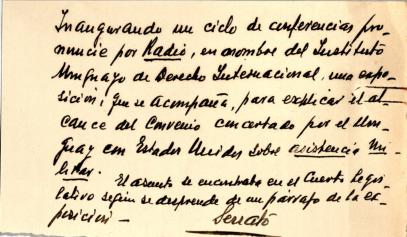 Inaugurando un ciclo de conferencias pro-
nuncié por Radio, en nombre del Instituto
Uruguayo de Derecho Internacional, una expo-
sición, que se acompaña, para explicar el al-
cance del Convenio concertado por el Uru-
guay con Estados Unidos sobre asistencia mi-
litar.
El asunto se encontraba en el Cuerpo Legis-
lativo según se desprende de un párrafo de la ex-
posición —
Serrato